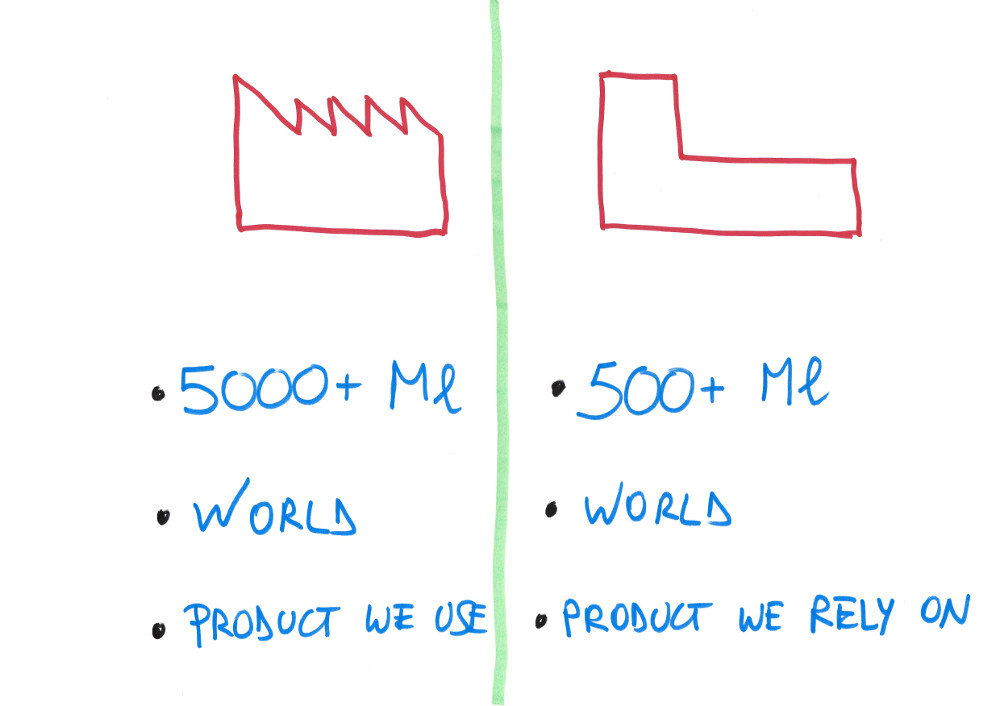 • 5000+ Ml
• WORLD
• PRODUCT WE USE
• 500+ Ml
• WORLD
• PRODUCT WE RELY ON